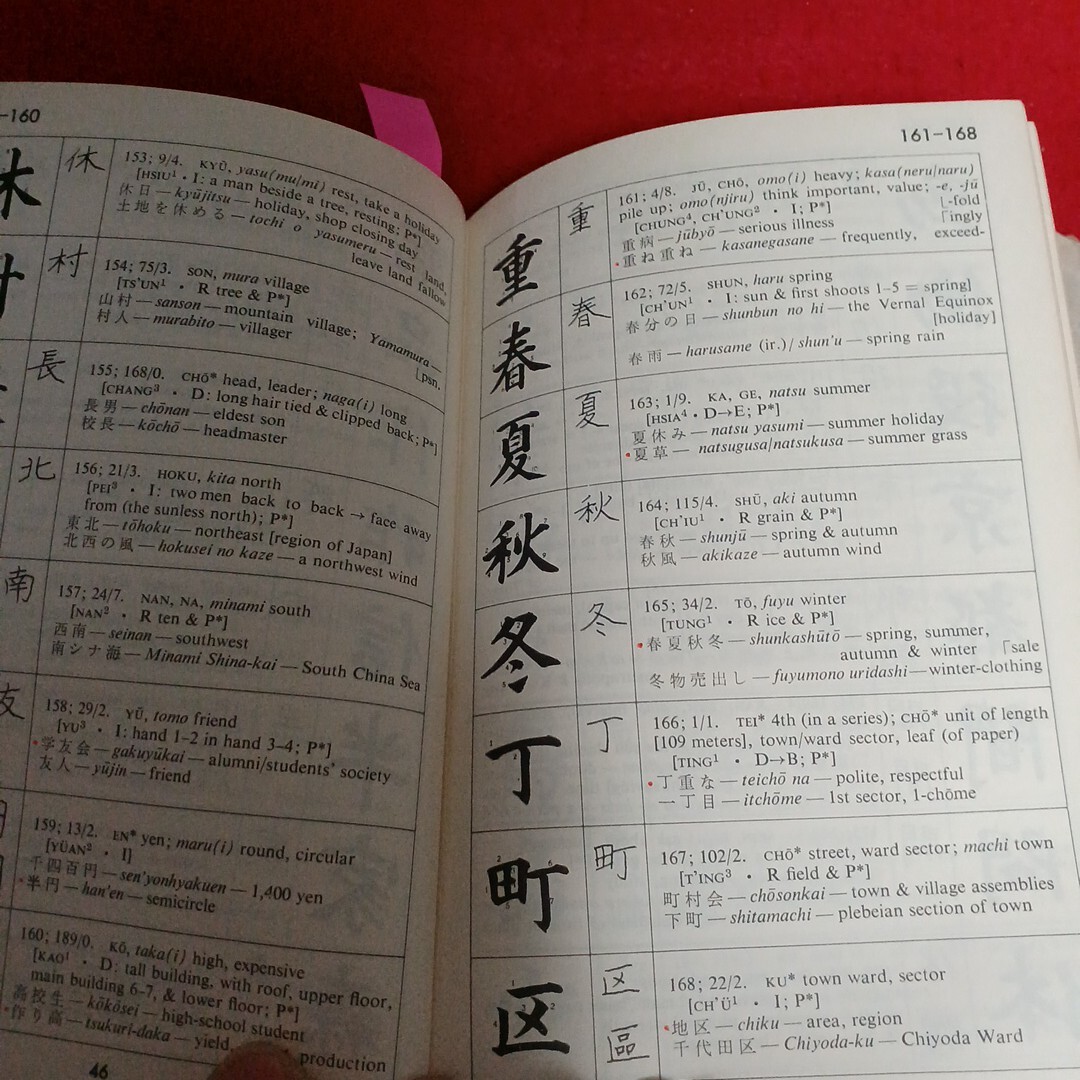 –160
休
休
153; 9/4. KYŪ, yasu(mu/mi) rest, take a holiday
[HSIU¹ · I: a man beside a tree, resting; P*]
休日 — kyūjitsu — holiday, shop closing day
土地を休める — tochi o yasumeru — rest land,
leave land fallow
村
村
154; 75/3. SON, mura village
[TS'UN¹ · R tree & P*]
山村 — sanson — mountain village; Yamamura —
村人 — murabito — villager
⌊psn.
長
155; 168/0. CHŌ* head, leader; naga(i) long
[CHANG³ · D: long hair tied & clipped back; P*]
長男 — chōnan — eldest son
校長 — kōchō — headmaster
北
156; 21/3. HOKU, kita north
[PEI³ · I: two men back to back → face away
from (the sunless north); P*]
東北 — tōhoku — northeast [region of Japan]
北西の風 — hokusei no kaze — a northwest wind
南
157; 24/7. NAN, NA, minami south
[NAN² · R ten & P*]
西南 — seinan — southwest
南シナ海 — Minami Shina-kai — South China Sea
友
158; 29/2. YŪ, tomo friend
[YU³ · I: hand 1–2 in hand 3–4; P*]
•学友会 — gakuyūkai — alumni/students' society
友人 — yūjin — friend
159; 13/2. EN* yen; maru(i) round, circular
[YÜAN² · I]
千四百円 — sen'yonhyakuen — 1,400 yen
•半円 — han'en — semicircle
160; 189/0. KŌ, taka(i) high, expensive
[KAO¹ · D: tall building, with roof, upper floor,
main building 6–7, & lower floor; P*]
高校生 — kōkōsei — high-school student
•作り高 — tsukuri-daka — yield, production
46
161–168
重
重
161; 4/8. JŪ, CHŌ, omo(i) heavy; kasa(neru/naru)
pile up; omo(njiru) think important, value; -e, -jū
[CHUNG⁴, CH'UNG² · I; P*] ⌊-fold
重病 — jūbyō — serious illness ⌈ingly
•重ね重ね — kasanegasane — frequently, exceed-
春
春
162; 72/5. SHUN, haru spring
[CH'UN¹ · I: sun & first shoots 1–5 = spring]
春分の日 — shunbun no hi — the Vernal Equinox
[holiday]
春雨 — harusame (ir.)/ shun'u — spring rain
夏
夏
163; 1/9. KA, GE, natsu summer
[HSIA⁴ · D→E; P*]
夏休み — natsu yasumi — summer holiday
•夏草 — natsugusa/natsukusa — summer grass
秋
秋
164; 115/4. SHŪ, aki autumn
[CH'IU¹ · R grain & P*]
春秋 — shunjū — spring & autumn
秋風 — akikaze — autumn wind
冬
冬
165; 34/2. TŌ, fuyu winter
[TUNG¹ · R ice & P*]
•春夏秋冬 — shunkashūtō — spring, summer,
autumn & winter ⌈sale
冬物売出し — fuyumono uridashi — winter-clothing
丁
丁
166; 1/1. TEI* 4th (in a series); CHŌ* unit of length
[109 meters], town/ward sector, leaf (of paper)
[TING¹ · D→B; P*]
•丁重な — teichō na — polite, respectful
一丁目 — itchōme — 1st sector, 1-chōme
町
町
167; 102/2. CHŌ* street, ward sector; machi town
[T'ING³ · R field & P*]
町村会 — chōsonkai — town & village assemblies
下町 — shitamachi — plebeian section of town
区
区
區
168; 22/2. KU* town ward, sector
[CH'Ü¹ · I; P*]
•地区 — chiku — area, region
千代田区 — Chiyoda-ku — Chiyoda Ward